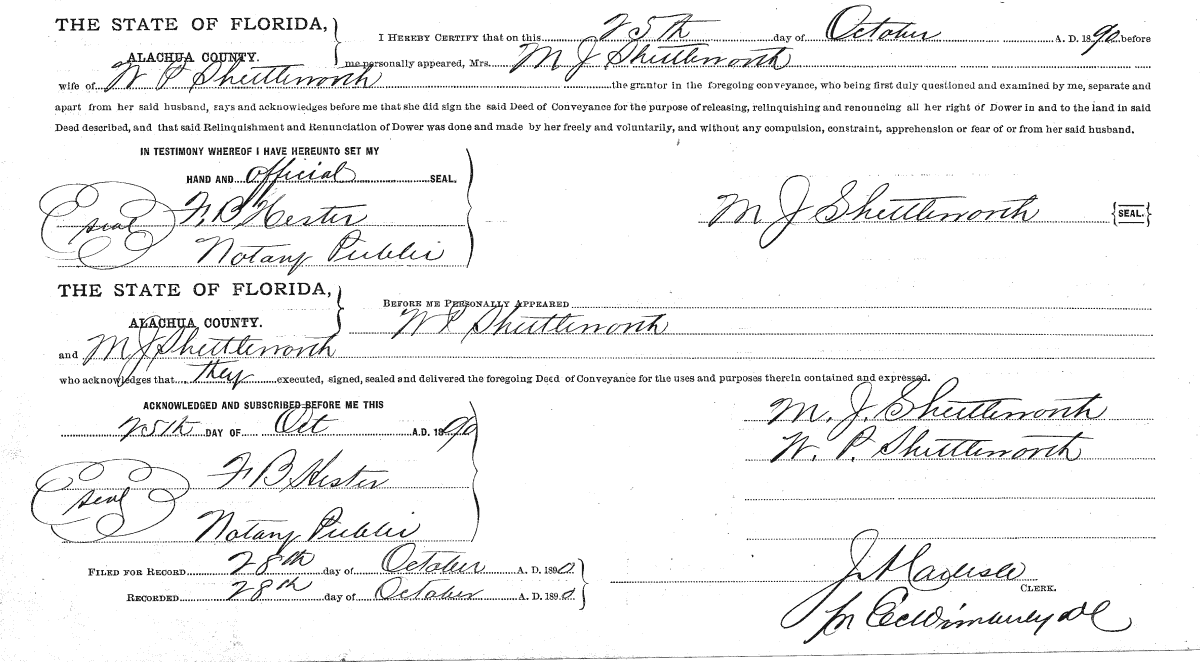 THE STATE OF FLORIDA,
ALACHUA COUNTY.
I HEREBY CERTIFY that on this 25th day of October A. D. 1890 before
me personally appeared, Mrs. M J Shettleworth
wife of W P Shettleworth the grantor in the foregoing conveyance, who being first duly questioned and examined by me, separate and
apart from her said husband, says and acknowledges before me that she did sign the said Deed of Conveyance for the purpose of releasing, relinquishing and renouncing all her right of Dower in and to the land in said
Deed described, and that said Relinquishment and Renunciation of Dower was done and made by her freely and voluntarily, and without any compulsion, constraint, apprehension or fear of or from her said husband.
IN TESTIMONY WHEREOF I HAVE HEREUNTO SET MY
HAND AND official SEAL.
seal F. B Hester
Notary Public
M J Shettleworth {SEAL.}
THE STATE OF FLORIDA,
ALACHUA COUNTY.
BEFORE ME PERSONALLY APPEARED
W P Shettleworth
and M J Shettleworth
who acknowledges that they executed, signed, sealed and delivered the foregoing Deed of Conveyance for the uses and purposes therein contained and expressed.
ACKNOWLEDGED AND SUBSCRIBED BEFORE ME THIS
25th DAY OF Oct A.D. 1890
seal F B Hester
Notary Public
M. J. Shettleworth
W. P. Shettleworth
FILED FOR RECORD 28th day of October A. D. 1890
RECORDED 28th day of October A. D. 1890
CLERK.